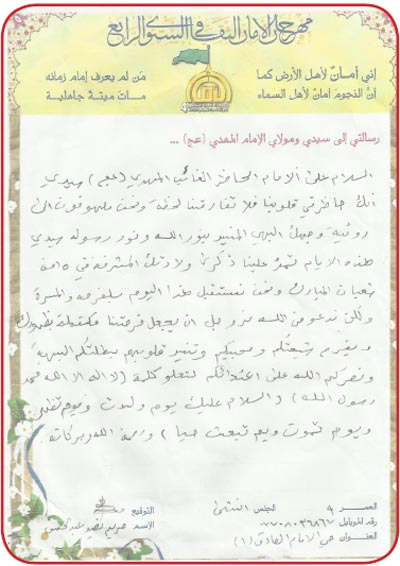 مهرجان الإمام الباقر السنوي الرابع
إني أمان لأهل الأرض كما
أن النجوم أمان لأهل السماء
من لم يعرف إمام زمانه
مات ميتة جاهلية
رسالتي إلى سيدي ومولاي الإمام المهدي (عج) ...
السلام على الامام الحاضر الغائب المهدي (عج) سيدي
انك حاضر في قلوبنا فلا تفارقنا لحظة ونحن ملهوفون الى
رؤية وجهك البهي المنير بنور الله ونور رسوله سيدي
هذه الايام تمر علينا ذكرى ولادتك المشرفة في
شعبان المبارك ونحن نستقبل هذا اليوم والمسرة
ولكن ندعو من الله عز وجل ان يجعل فرحتنا بظهورك
شيعتكم ومحبيكم وتنير قلوبهم بطلتكم البهية
ونصركم الله على اعدائكم لتعلو كلمة (لا اله الا الله محمد
رسول الله) والسلام عليك يوم ولدت ويوم تظهر
ويوم تموت ويوم تبعث حيا ورحمة الله وبركاته
العمر ٩ الجنس انثى التوقيع
رقم الموبايل الاسم مريم
العنوان حي الامام الصادق (ع)